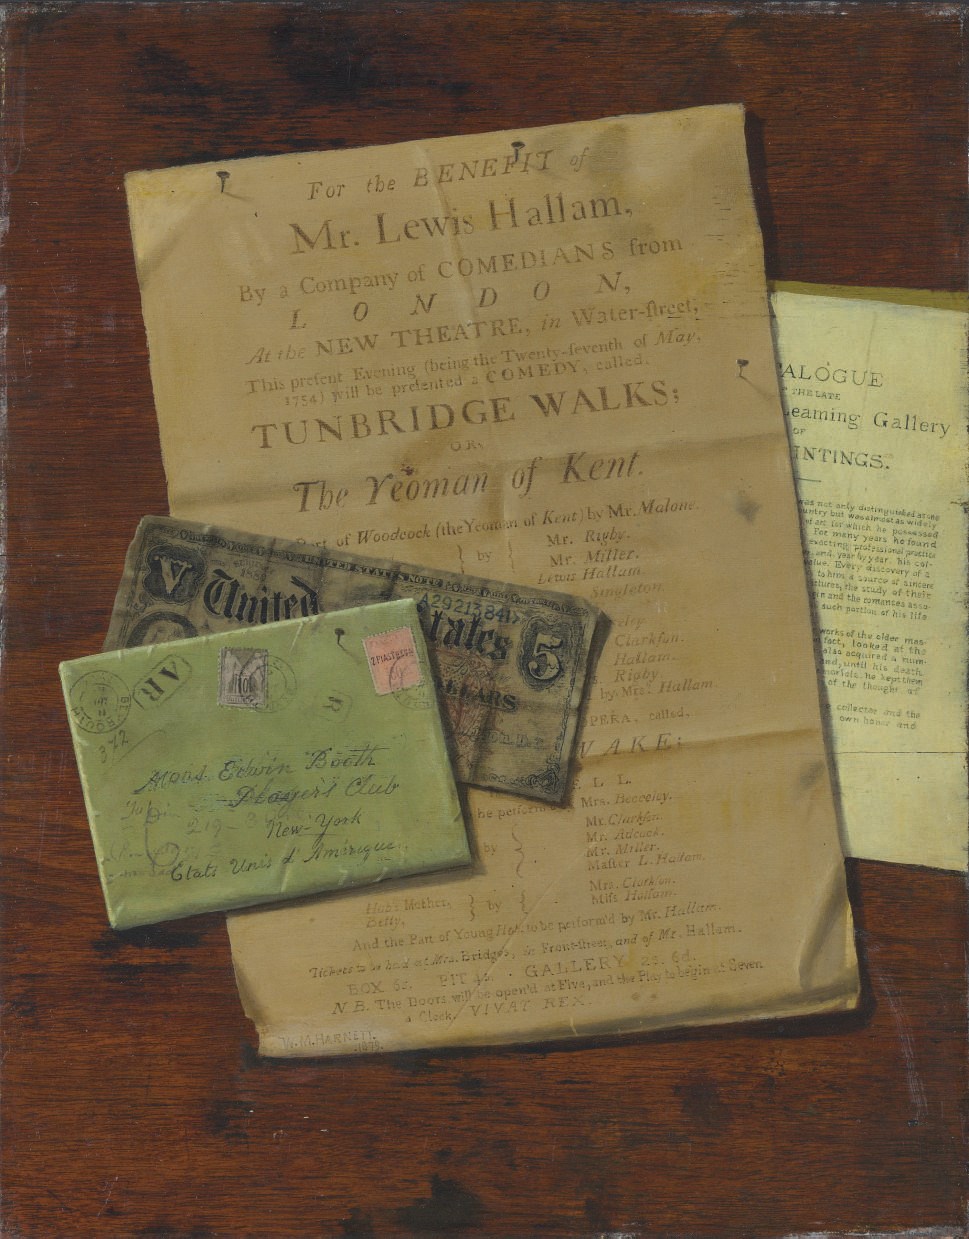 For the BENEFIT of
Mr. Lewis Hallam,
By a Company of COMEDIANS from
LONDON,
At the NEW THEATRE, in Water-ſtreet,
This preſent Evening (being the Twenty-ſeventh of May,
1754) will be preſented a COMEDY, called.
TUNBRIDGE WALKS;
OR,
The Yeoman of Kent.
Part of Woodcock (the Yeoman of Kent) by Mr. Malone.
Mr. Rigby.
by
Mr. Miller.
Lewis Hallam
Singleton.
Clarkſon.
Hallam.
Rigby
by Mrs. Hallam
PERA, called,
WAKE;
be perform
Mrs. Becceley.
Mr. Clarkſon.
Mr. Adcock.
by
Mr. Miller.
Maſter L. Hallam.
Mrs. Clarkſon.
Hob's Mother,
by
Miſs Hallam.
Betty,
And the Part of Young Hob, to be perform'd by Mr. Hallam.
Tickets to be had at Mrs. Bridges, in Front-ſtreet, and of Mr. Hallam.
BOX 6s. PIT 4s. GALLERY 2s. 6d.
N.B. The Doors will be open'd at Five, and the Play to begin at Seven
a Clock. VIVAT REX.
W. M. HARNETT.
1879.
ALOGUE
OF THE LATE
Leaming Gallery
OF
INTINGS.
was not only distinguished as one
untry but was almost as widely
of art for which he possessed
For many years he found
exacting profesional practice
and, year by year, his col-
alue. Every discovery of a
to him a source of sincere
ctures, the study of their
in and the romances asso-
such portion of his life
works of the older mas-
fact, looked at the
also acquired a num-
and, until his death,
morials, he kept them
of the thought of
collector and the
own honor and
V
United States
A29213841
5
LLARS
AR
R
10
2 PIASTRES
3-12
Edwin Booth
Player's Club
219-3
New-York
Etats Unis d'Amérique.